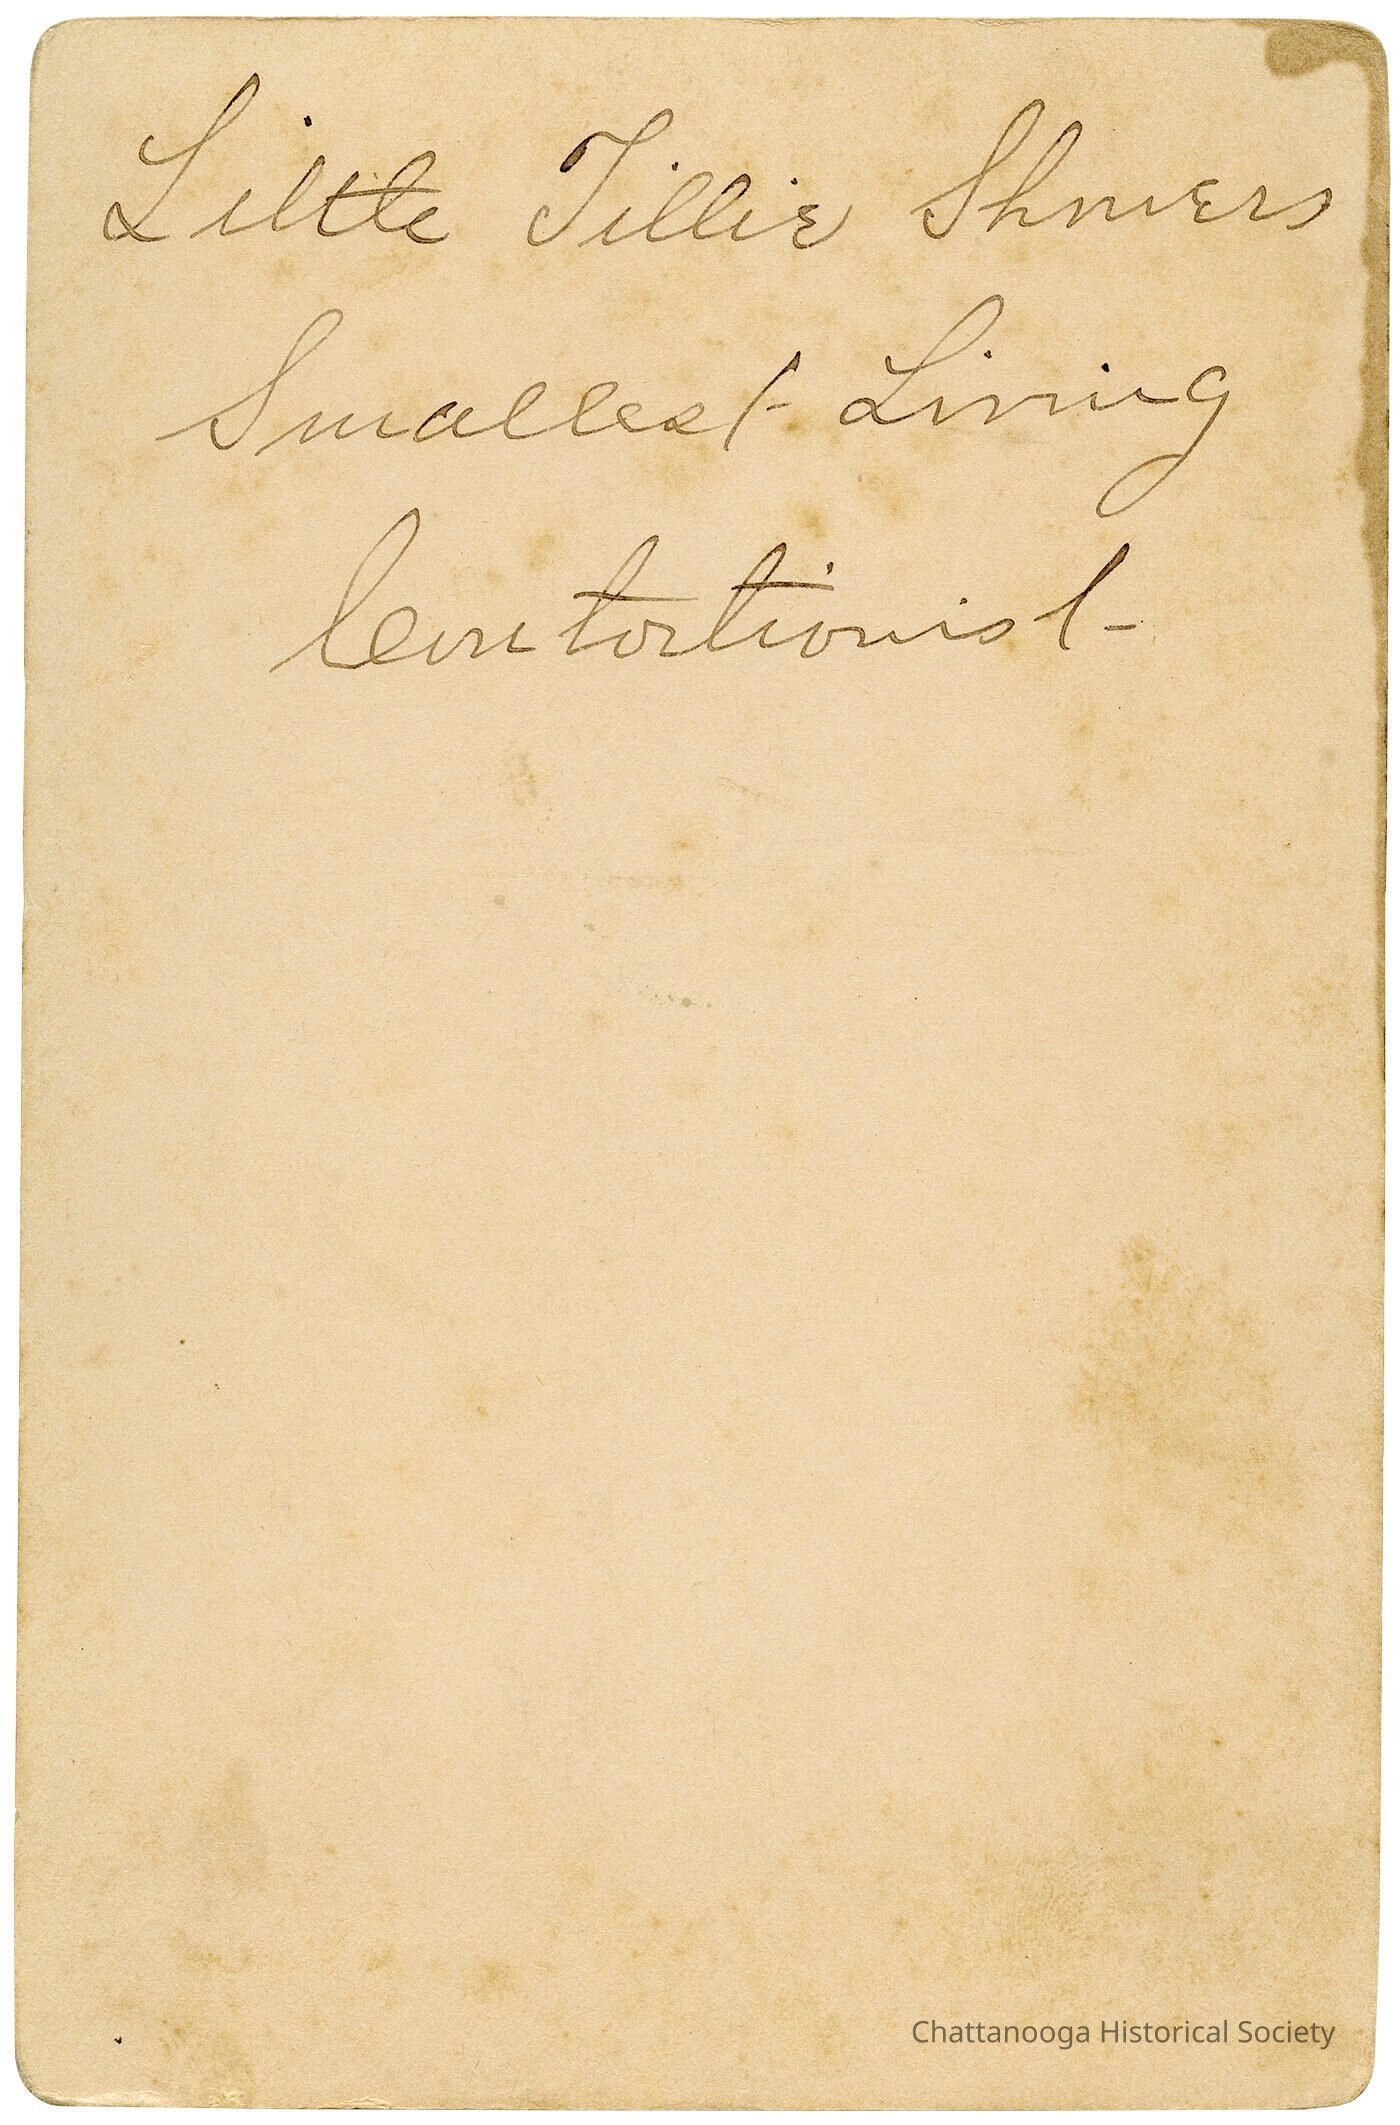 Little Tillie Showers
Smallest Living
Contortionist-
Chattanooga Historical Society